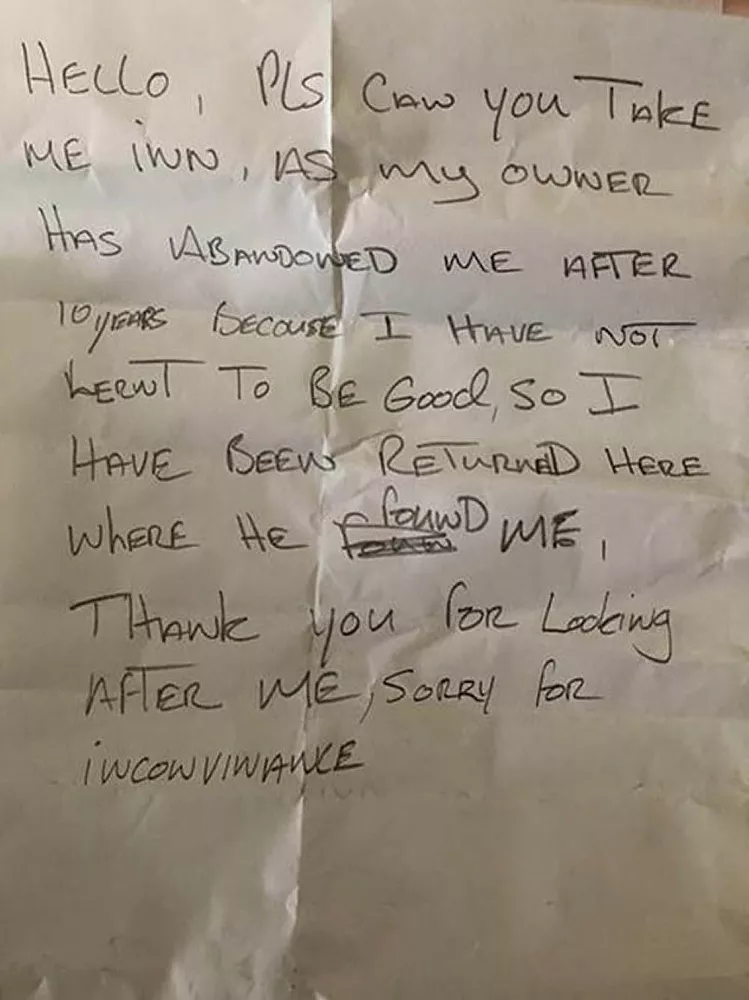 HELLO, PLS CAN YOU TAKE
ME INN, AS my OWNER
HAS ABANDONED ME AFTER
10 yEARS BECOUSE I HAVE NOT
LERNT TO BE Good, SO I
HAVE BEEN RETURNED HERE
WHERE HE founD ME,
THANK you for Looking
AFTER ME, SORRY for
iNCONVINANCE